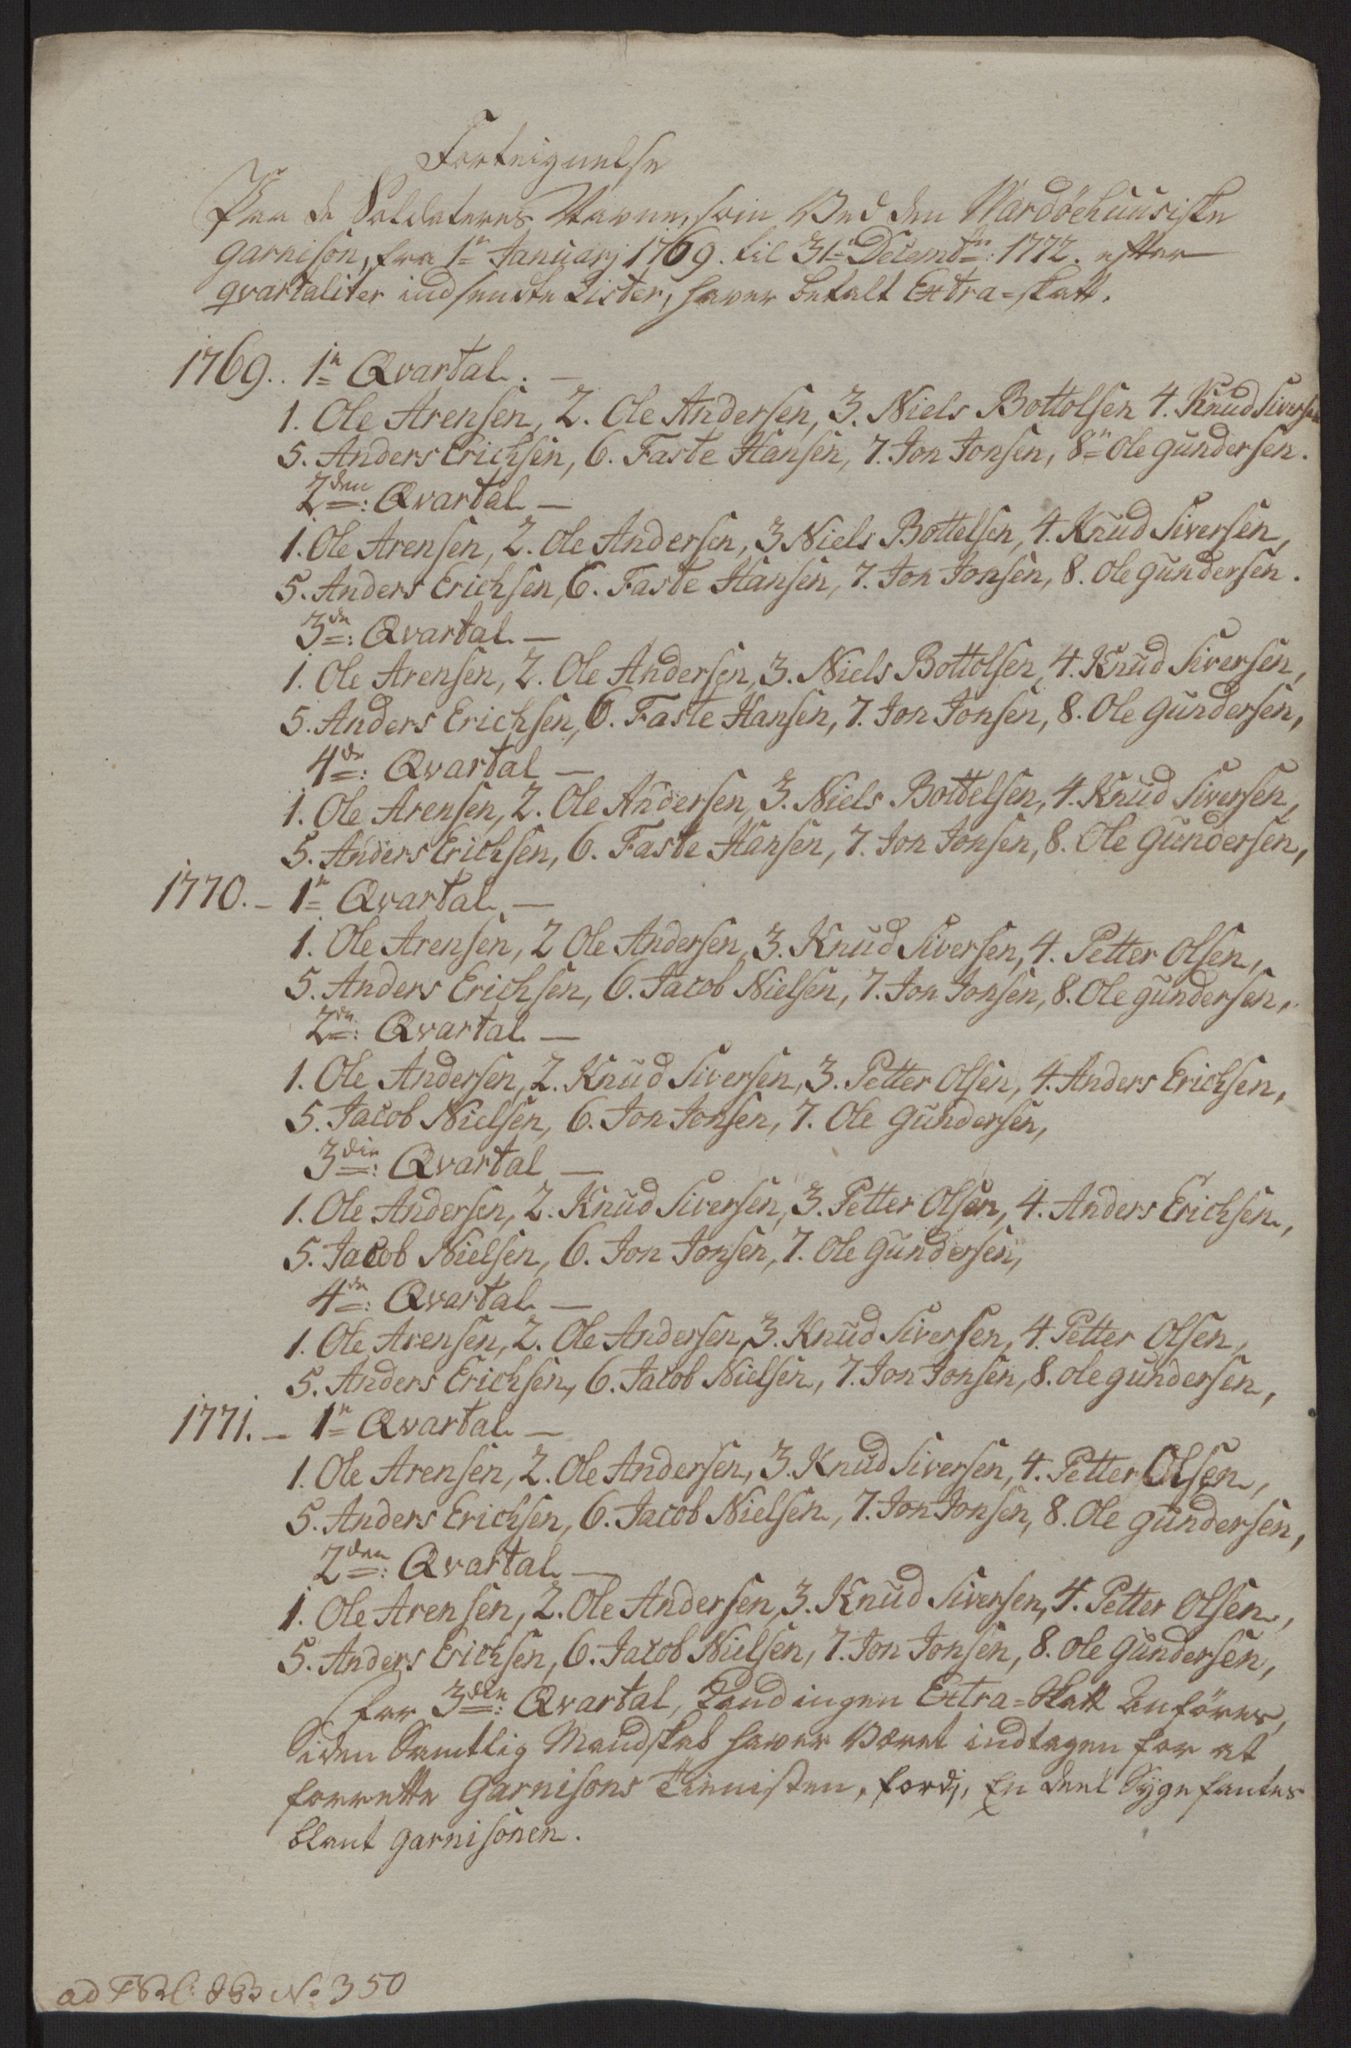 Forteignelse
Paa de Soldaters Navne, som Ved den Wardöehuusiske
Garnison, fra 1n Januarj 1769. til 31te Decembr: 1772. efter
qvartaliter indsendte Lister, haver betalt Extra=skatt.
1769.. 1n Qvartal. —
1. Ole Arensen, 2. Ole Andersen, 3. Niels Bottolsen 4. Knud Siversen
5. Anders Erichsen, 6. Faste Hansen, 7. Jon Jonsen, 8n Ole Gundersen.
2den: Qvartal —
1. Ole Arensen, 2. Ole Andersen, 3 Niels Bottelsen, 4. Knud Siversen,
5. Anders Erichsen, 6. Faste Hansen, 7. Jon Jonsen, 8. Ole Gundersen.
3de: Qvartal —
1. Ole Arensen, 2. Ole Andersen, 3. Niels Bottolsen, 4. Knud Siversen,
5. Anders Erichsen, 6. Faste Hansen, 7. Jon Jonsen, 8. Ole Gundersen,
4de: Qvartal —
1. Ole Arensen, 2. Ole Andersen, 3. Niels Bottelsen, 4. Knud Siversen,
5. Anders Erichsen, 6. Faste Hansen, 7. Jon Jonsen, 8. Ole Gundersen,
1770. — 1n Qvartal —
1. Ole Arensen, 2 Ole Andersen, 3. Knud Siversen, 4. Petter Olsen,
5. Anders Erichsen, 6. Jacob Nielsen, 7. Jon Jonsen, 8. Ole Gundersen,
2de: Qvartal —
1. Ole Andersen, 2. Knud Siversen, 3. Petter Olsen, 4. Anders Erichsen,
5. Jacob Nielsen, 6. Jon Jonsen, 7. Ole Gundersen,
3die: Qvartal —
1. Ole Andersen, 2. Knud Siversen, 3. Petter Olsen, 4. Anders Erichsen,
5. Jacob Nielsen, 6. Jon Jonsen, 7. Ole Gundersen,
4de: Qvartal —
1. Ole Arensen, 2. Ole Andersen, 3. Knud Siversen, 4. Petter Olsen,
5. Anders Erichsen, 6. Jacob Nielsen, 7. Jon Jonsen, 8. Ole Gundersen,
1771. — 1n Qvartal —
1. Ole Arensen, 2. Ole Andersen, 3. Knud Siversen, 4. Petter Olsen,
5. Anders Erichsen, 6. Jacob Nielsen, 7. Jon Jonsen, 8. Ole Gundersen,
2den: Qvartal —
1. Ole Arensen, 2. Ole Andersen, 3. Knud Siversen, 4. Petter Olsen,
5. Anders Erichsen, 6. Jacob Nielsen, 7. Jon Jonsen, 8. Ole Gundersen,
for 3die: Qvartal, kand ingen Extra=Skatt anföres,
Siden Samtlig Mandskab haver været indtagen for at
forrette Garnisons Tienisten, fordj, En deel Syge fantes
blant Garnisonen.
ad No 350